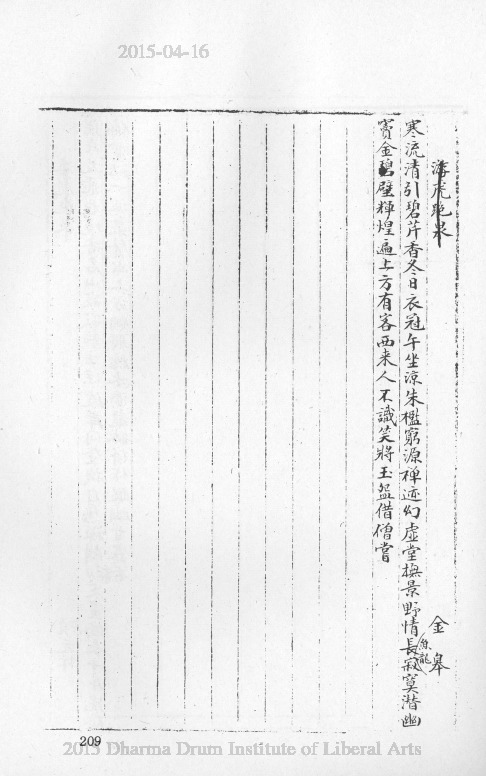 2015-04-16
游虎跑泉
金皋
寒流清引碧芹香冬日衣冠午坐涼朱檻窮源禪迹幻虛堂撫景野情長寂寞潜幽
絲龍
竇金碧壁輝煌遍上方有客西来人不識笑將玉盌借僧嘗
209
2015 Dharma Drum Institute of Liberal Arts